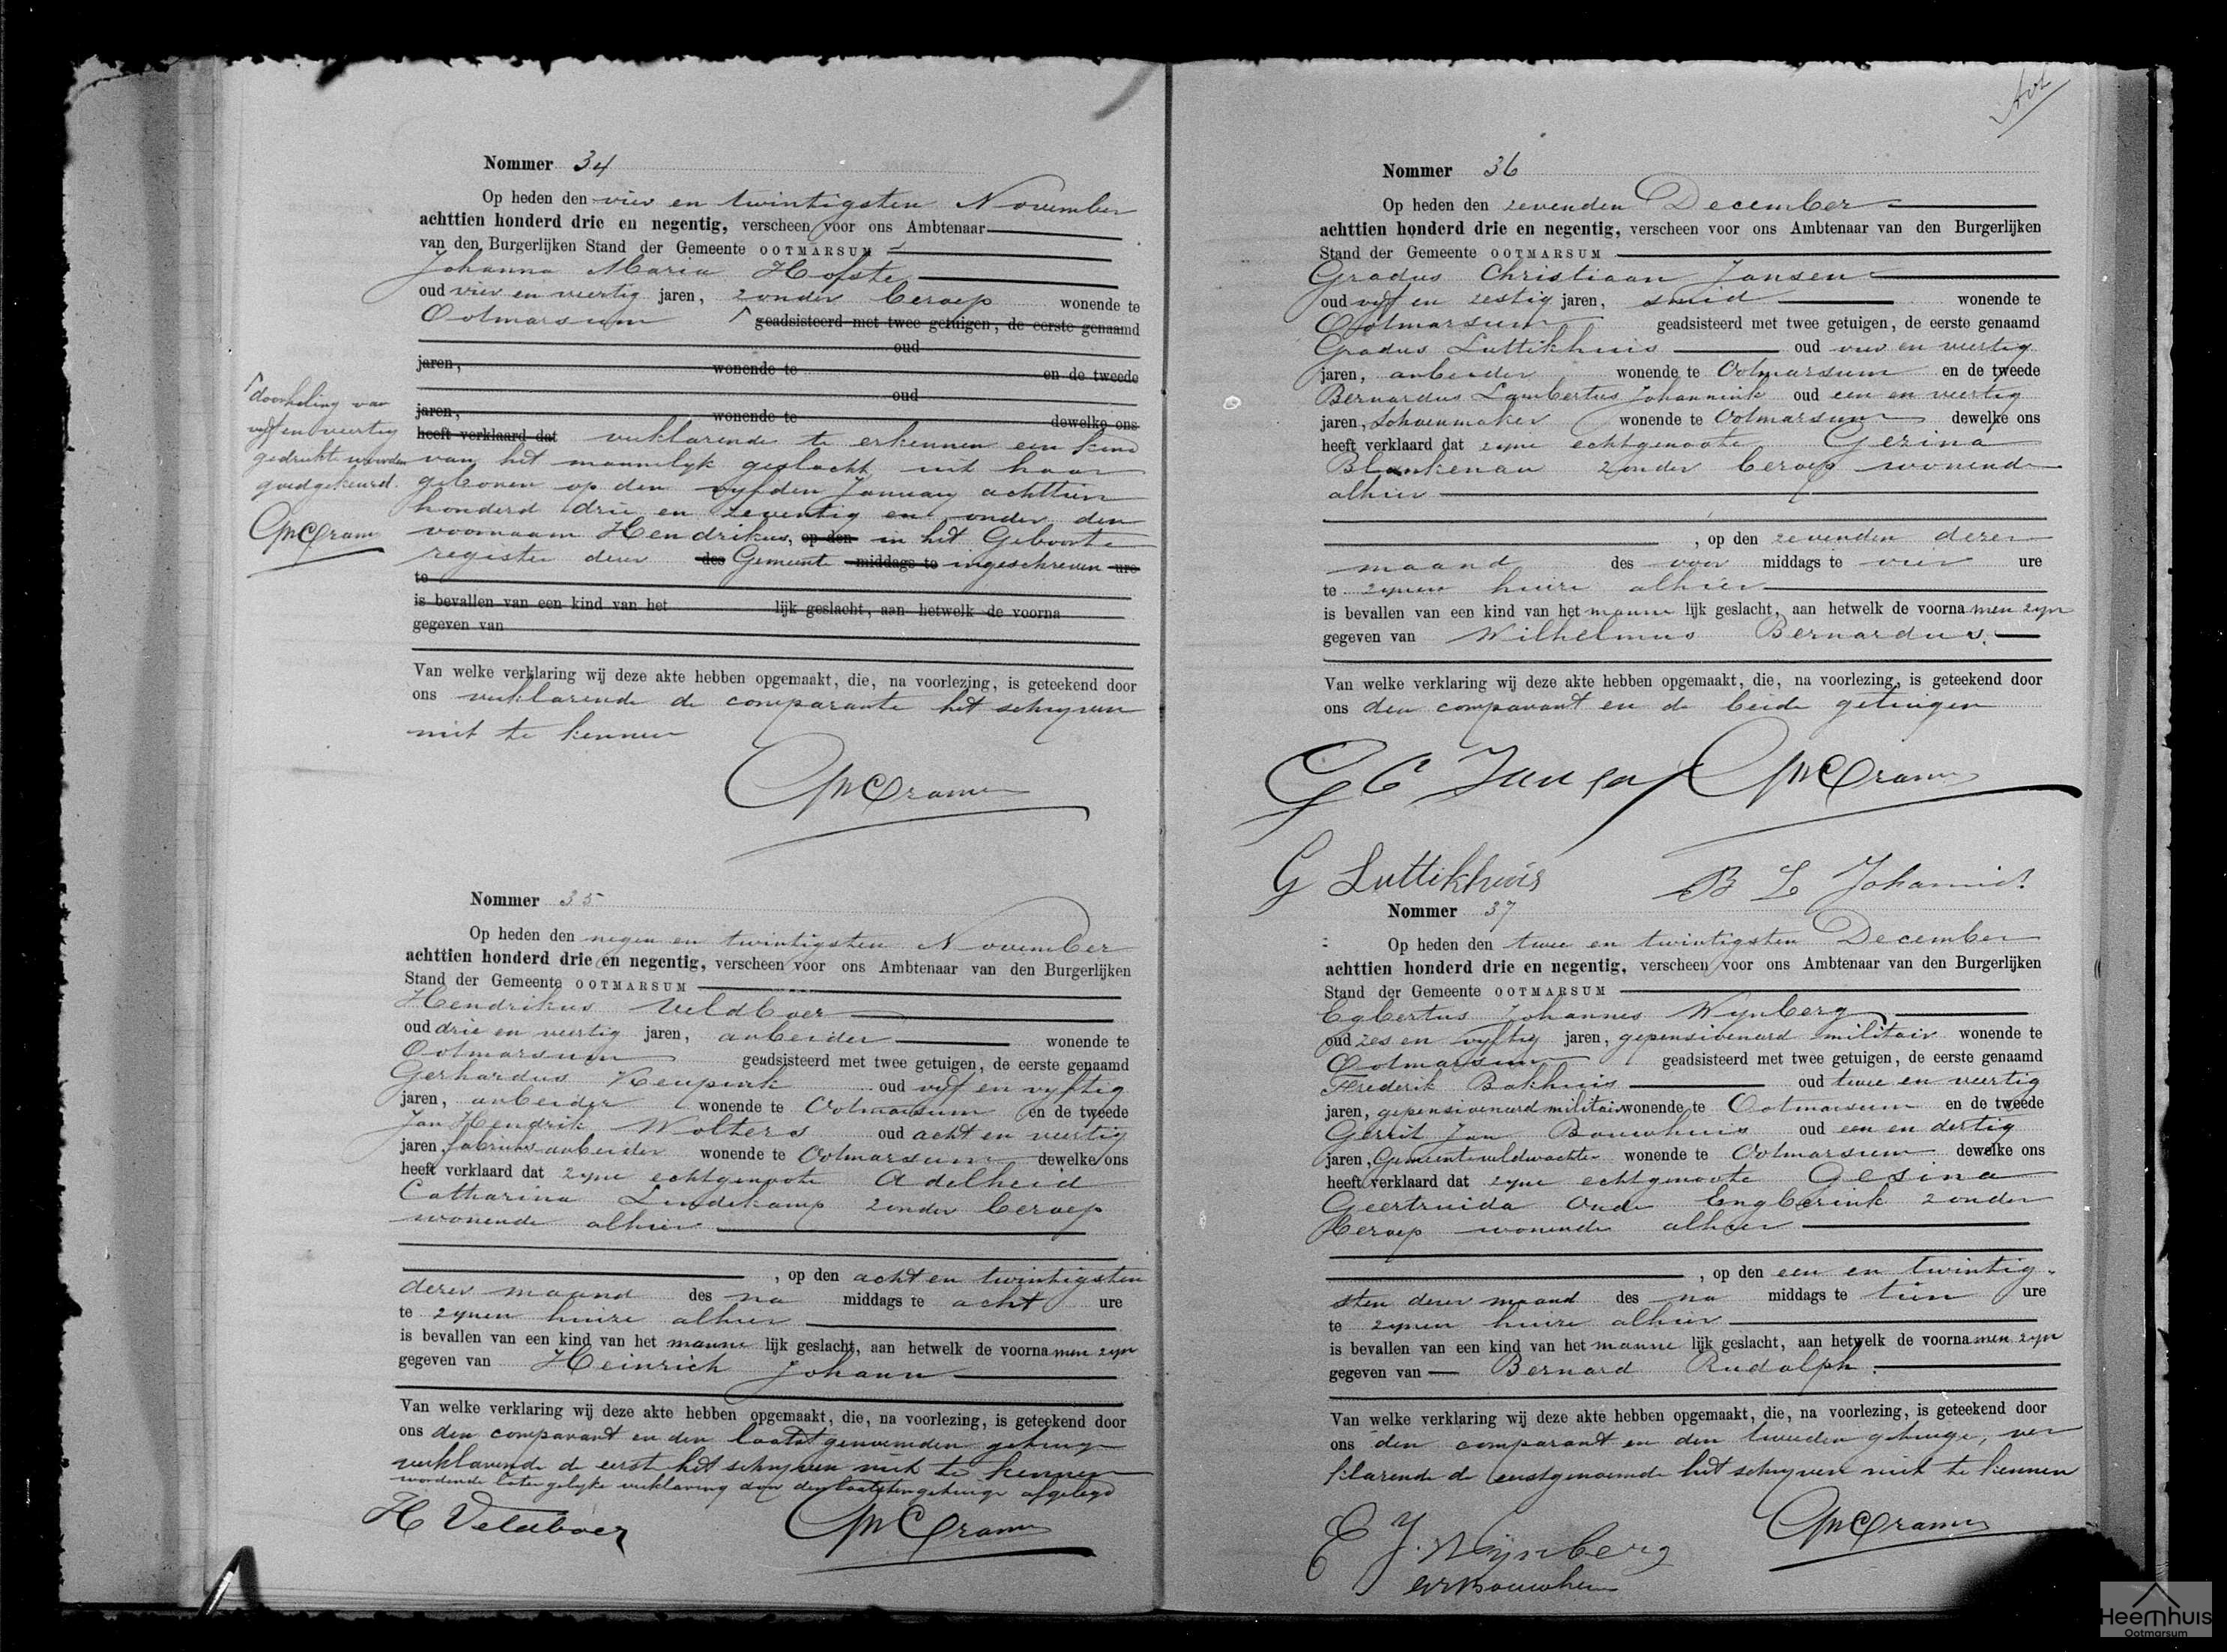 Nommer 34
Op heden den vier en twintigsten November
achttien honderd drie en negentig, verscheen voor ons Ambtenaar
van den Burgerlijken Stand der Gemeente OOTMARSUM
Johanna Maria Hofste
oud vier en veertig jaren, zonder beroep wonende te
Ootmarsum geadsisteerd met twee getuigen, de eerste genaamd
oud
jaren, wonende te en de tweede
oud
jaren, wonende te dewelke ons
heeft verklaard dat verklarende te erkennen een kind
van het mannelijk geslacht uit haar
geboren op den vijfden Januarij achttien
honderd drie en zeventig en onder den
voornaam Hendrikus, op den in het Geboorte
register dezer des Gemeente middags te ingeschreven ure
te
is bevallen van een kind van het lijk geslacht, aan hetwelk de voorna
gegeven van
Van welke verklaring wij deze akte hebben opgemaakt, die, na voorlezing, is geteekend door
ons verklarende de comparante het schrijven
niet te kennen
doorhaling van
vijf en veertig
gedrukte woorden
goedgekeurd.
Nommer 35
Op heden den negen en twintigsten November
achttien honderd drie en negentig, verscheen voor ons Ambtenaar van den Burgerlijken
Stand der Gemeente OOTMARSUM
Hendrikus Veldboer
oud drie en veertig jaren, arbeider wonende te
Ootmarsum geadsisteerd met twee getuigen, de eerste genaamd
Gerhardus Keupink oud vijf en vijftig
jaren, arbeider wonende te Ootmarsum en de tweede
Jan Hendrik Wolters oud acht en veertig
jaren, fabrieksarbeider wonende te Ootmarsum dewelke ons
heeft verklaard dat zijne echtgenoote Adelheid
Catharina Lindekamp zonder beroep
wonende alhier
, op den acht en twintigsten
dezer maand des na middags te acht ure
te zijnen huize alhier
is bevallen van een kind van het manne lijk geslacht, aan hetwelk de voorna men zijn
gegeven van Heinrich Johann
Van welke verklaring wij deze akte hebben opgemaakt, die, na voorlezing, is geteekend door
ons den comparant en den laatstgenoemden getuige
verklarende de eerste het schrijven niet te kennen
wordende later gelijke verklaring door den laatsten getuige afgelegd
H Veldboer
Nommer 36
Op heden den zevenden December
achttien honderd drie en negentig, verscheen voor ons Ambtenaar van den Burgerlijken
Stand der Gemeente OOTMARSUM
Gradus Christiaan Jansen
oud vijf en zestig jaren, smid wonende te
Ootmarsum geadsisteerd met twee getuigen, de eerste genaamd
Gradus Luttikhuis oud vier en veertig
jaren, arbeider wonende te Ootmarsum en de tweede
Bernardus Lambertus Johannink oud een en veertig
jaren, Schoenmaker wonende te Ootmarsum dewelke ons
heeft verklaard dat zijne echtgenoote Gezina
Blankenau zonder beroep wonende
alhier
, op den zevenden dezer
maand des voor middags te vier ure
te zijnen huize alhier
is bevallen van een kind van het manne lijk geslacht, aan hetwelk de voorna men zijn
gegeven van Wilhelmus Bernardus.
Van welke verklaring wij deze akte hebben opgemaakt, die, na voorlezing, is geteekend door
ons den comparant en de beide getuigen
G C Jansen
G Luttikhuis B L Johannink
Nommer 37
Op heden den twee en twintigsten December
achttien honderd drie en negentig, verscheen voor ons Ambtenaar van den Burgerlijken
Stand der Gemeente OOTMARSUM
Egbertus Johannes Wijnberg
oud zes en vijftig jaren, gepensioneerd militair wonende te
Ootmarsum geadsisteerd met twee getuigen, de eerste genaamd
Frederik Bokhuis oud twee en veertig
jaren, gepensioneerd militair wonende te Ootmarsum en de tweede
Gerrit Jan Bouwhuis oud een en dertig
jaren, Gemeenteveldwachter wonende te Ootmarsum dewelke ons
heeft verklaard dat zijne echtgenoote Gesina
Geertruida Oude Engberink zonder
beroep wonende alhier
, op den een en twintig-
sten dezer maand des na middags te tien ure
te zijnen huize alhier
is bevallen van een kind van het manne lijk geslacht, aan hetwelk de voorna men zijn
gegeven van Bernard Rudolph.
Van welke verklaring wij deze akte hebben opgemaakt, die, na voorlezing, is geteekend door
ons den comparant en den tweeden getuige, ver
klarende de eerstgenoemde het schrijven niet te kennen
E J. Wijnberg
Heemhuis
Ootmarsum